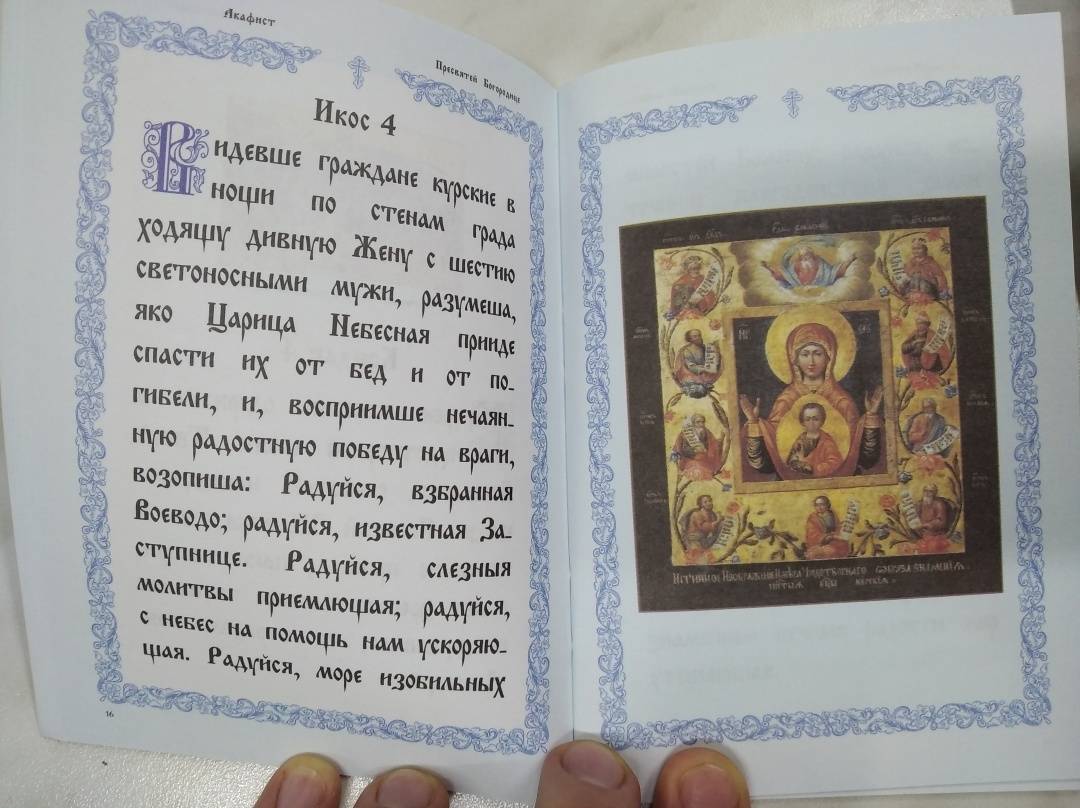 Акафист
Пресвятей Богородице
Икос 4
Видевше граждане курские в
нощи по стенам града
ходящу дивную Жену с шестию
светоносными мужи, разумеша,
яко Царица Небесная прииде
спасти их от бед и от по-
гибели, и, восприимше нечаян-
ную радостную победу на враги,
возопиша: Радуйся, взбранная
Воеводо; радуйся, известная За-
ступнице. Радуйся, слезныя
молитвы приемлющая; радуйся,
с небес на помощь нам ускоряю-
щая. Радуйся, море изобильных
16